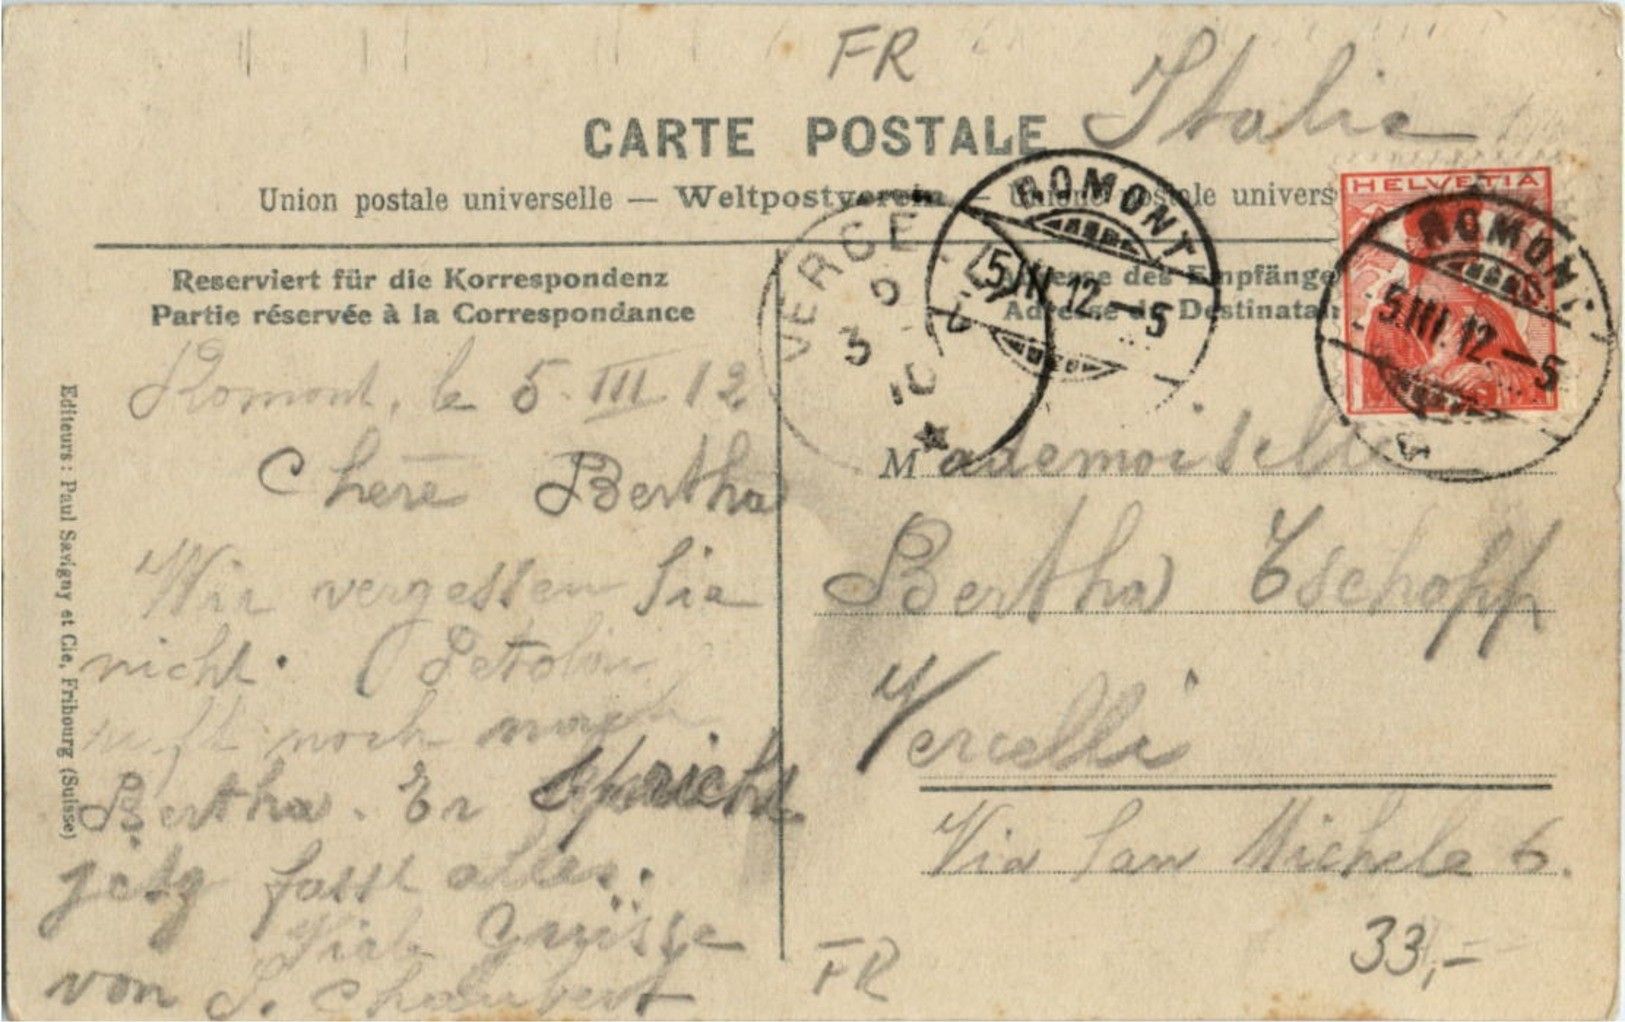 FR
Italie
CARTE POSTALE
Union postale universelle — Weltpostverein — Unione postale univers
HELVETIA
ROMONT
5.III.12–5
ROMONT
5.III.12–5
VERCE
5
3
Reserviert für die Korrespondenz
Partie réservée à la Correspondance
Adresse des Empfänge
Adresse du Destinatai
Romont, le 5. III 12
Chère Bertha
Wir vergessen Sie
nicht.
ruft noch nach
Bertha. Er spricht
jetz fasst alles.
Viele Grüsse
von S. Chaubert
Mademoiselle
Bertha Tschopp
Vercelli
Via San Michele 6.
FR
33,-
Editeurs : Paul Savigny et Cie, Fribourg (Suisse)